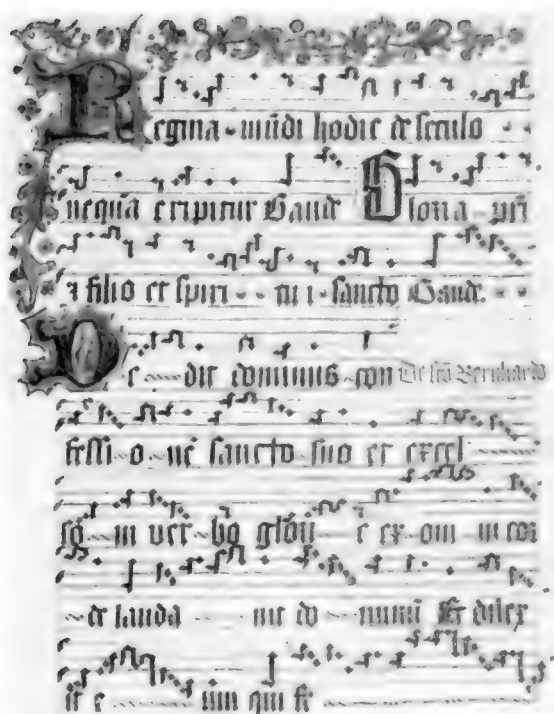 Regina mūdi hodie de seculo
nequā eripitur Gaude Gloria pr̄i
⁊ filio et spiri tu i sancto Gaude.
De dit dominus con De sc̄o Bernhardo
fessi o nē sancto suo et excel
so in ver bo glōri e ex om ni cor
de lauda uit do minū Et dilex
it e um qui fe